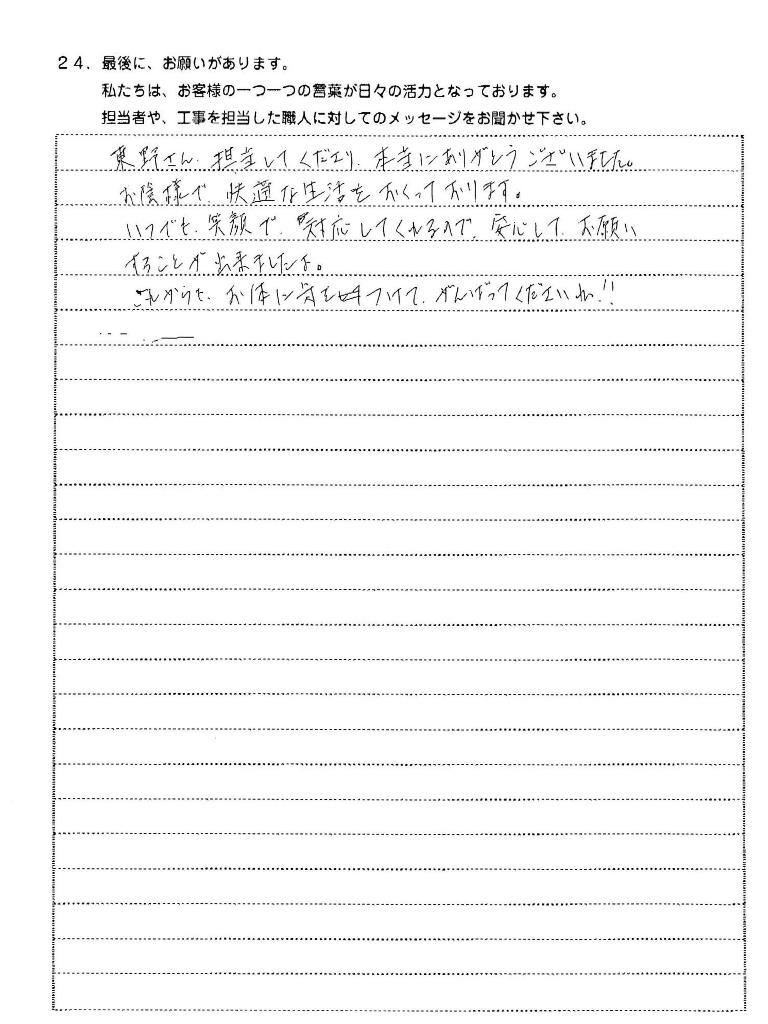 24. 最後に、お願いがあります。
私たちは、お客様の一つ一つの言葉が日々の活力となっております。
担当者や、工事を担当した職人に対してのメッセージをお聞かせ下さい。
東野さん、担当してくださり、本当にありがとうございました。
お陰様で、快適な生活をおくっております。
いつでも、笑顔で、対応してくれるので、安心して、お願い
することが出来ましたよ。
これからも、お体に気をつけて、がんばってくださいね!!